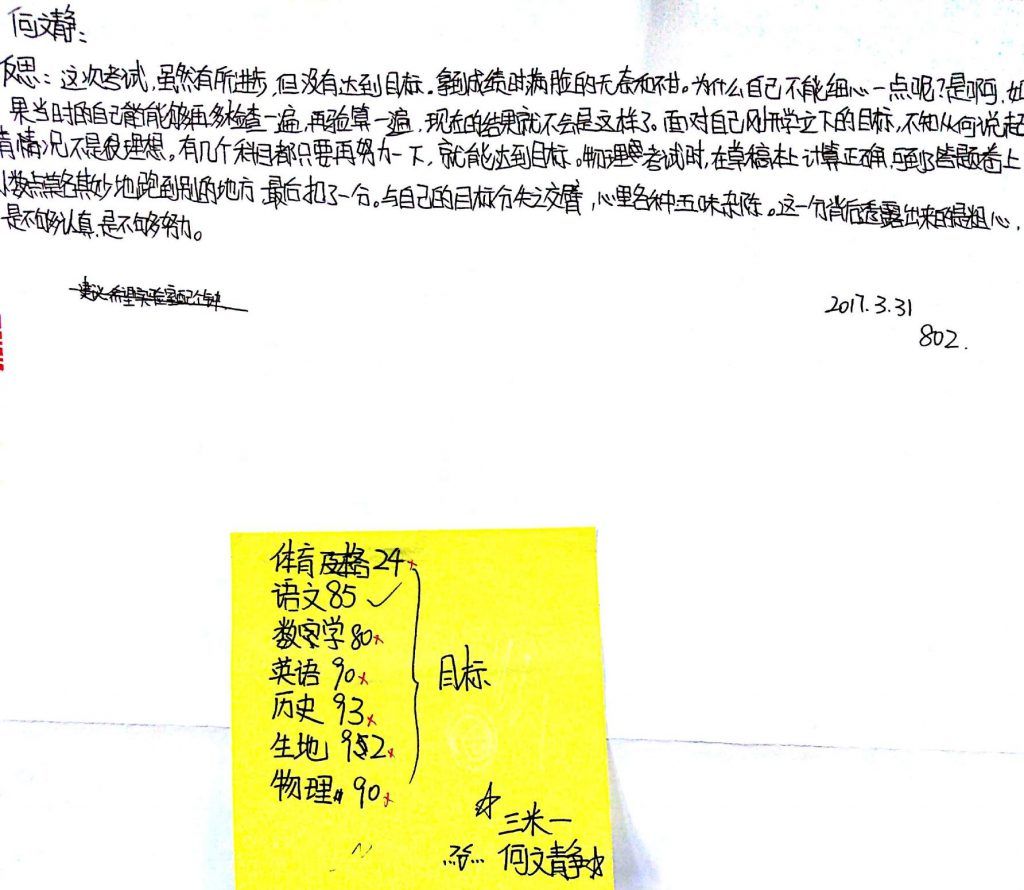 何文静:
反思:这次考试,虽然有所进步,但没有达到目标.拿到成绩时满脸的无奈和不甘。为什么自己不能细心一点呢?是啊,如
果当时的自己能能够再多检查一遍,再验算一遍,现在的结果就不会是这样了。面对自己刚开学立下的目标,不知从何说起
情况不是很理想。有几个科目都只要再努力一下,就能达到目标。物理考试时,在草稿本上计算正确,可到了答题卷上
小数点莫名其妙地跑到别的地方,最后扣了一分。与自己的目标分失之交臂,心里各种五味杂陈。这一分背后透露出来的是粗心,
是不够认真,是不够努力。
建议希望实验室配个钟.
2017.3.31
802.
体育及格24×
语文85 ✓
数学80×
英语 90×
历史 93×
生地 92×
物理 90×
目标
☆
三米一
何文静☆